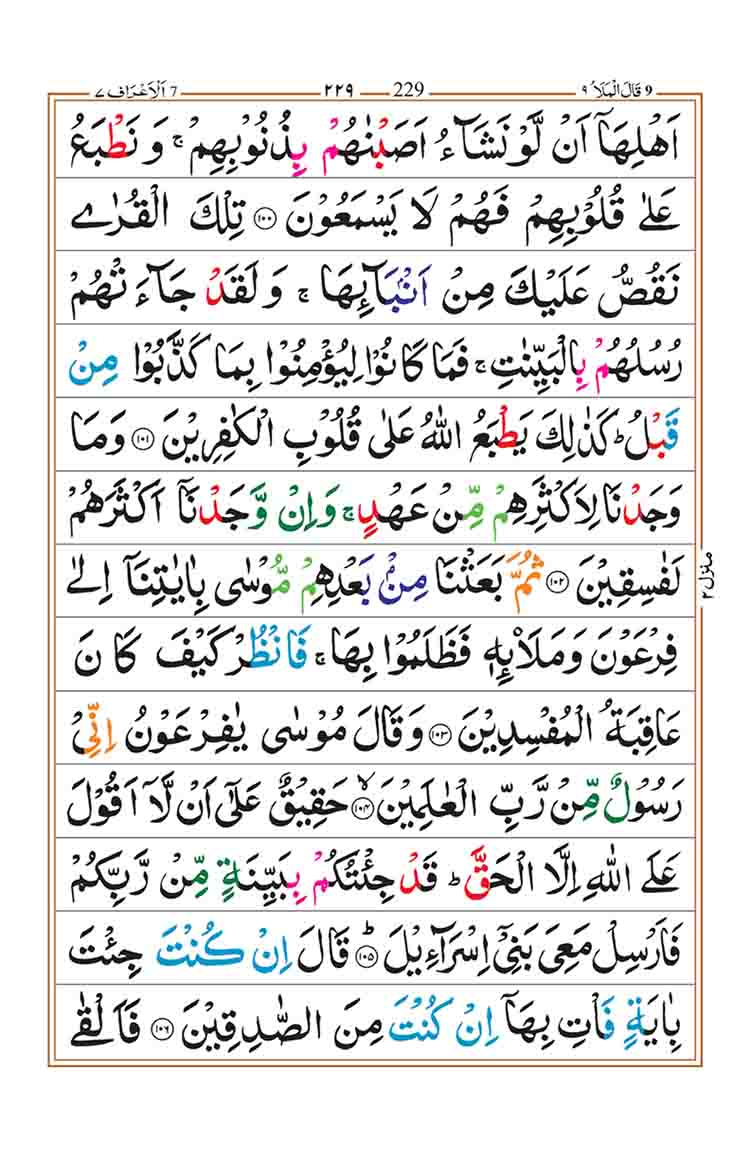 9 قَالَ الْمَلَاُ ٩ 229 ٢٢٩ 7 اَلْاَعْرَاف ٧
اَهْلِهَاۤ اَنْ لَّوْ نَشَآءُ اَصَبْنٰهُمْ بِذُنُوْبِهِمْ ۚ وَ نَطْبَعُ
عَلٰى قُلُوْبِهِمْ فَهُمْ لَا يَسْمَعُوْنَ ﴿۱۰۰﴾ تِلْكَ الْقُرٰى
نَقُصُّ عَلَيْكَ مِنْ اَنْۢبَآئِهَا ۚ وَ لَقَدْ جَآءَتْهُمْ
رُسُلُهُمْ بِالْبَيِّنٰتِ ۚ فَمَا كَانُوْا لِيُؤْمِنُوْا بِمَا كَذَّبُوْا مِنْ
قَبْلُ ؕ كَذٰلِكَ يَطْبَعُ اللّٰهُ عَلٰى قُلُوْبِ الْكٰفِرِيْنَ ﴿۱۰۱﴾ وَمَا
وَجَدْنَا لِاَكْثَرِهِمْ مِّنْ عَهْدٍ ۚ وَ اِنْ وَّجَدْنَاۤ اَكْثَرَهُمْ
لَفٰسِقِيْنَ ﴿۱۰۲﴾ ثُمَّ بَعَثْنَا مِنْۢ بَعْدِهِمْ مُّوْسٰى بِاٰيٰتِنَاۤ اِلٰى
فِرْعَوْنَ وَ مَلَا۟ئِهٖ فَظَلَمُوْا بِهَا ۚ فَانْظُرْ كَيْفَ كَانَ
عَاقِبَةُ الْمُفْسِدِيْنَ ﴿۱۰۳﴾ وَ قَالَ مُوْسٰى يٰفِرْعَوْنُ اِنِّىْ
رَسُوْلٌ مِّنْ رَّبِّ الْعٰلَمِيْنَ ﴿۱۰۴﴾ ۙ حَقِيْقٌ عَلٰۤى اَنْ لَّاۤ اَقُوْلَ
عَلَى اللّٰهِ اِلَّا الْحَقَّ ؕ قَدْ جِئْتُكُمْ بِبَيِّنَةٍ مِّنْ رَّبِّكُمْ
فَاَرْسِلْ مَعِىَ بَنِىْۤ اِسْرَآءِيْلَ ﴿۱۰۵﴾ ؕ قَالَ اِنْ كُنْتَ جِئْتَ
بِاٰيَةٍ فَاْتِ بِهَاۤ اِنْ كُنْتَ مِنَ الصّٰدِقِيْنَ ﴿۱۰۶﴾ فَاَلْقٰى
منزل ۲